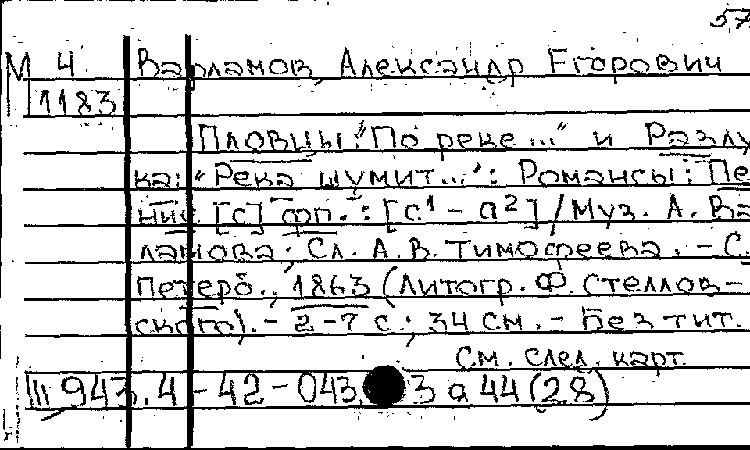 57
М 4 Варламов, Александр Егорович
1183
Пловцы: "По реке..." и Разлу
ка: "Река шумит...": Романсы: Пе
ние [с] фп.: [c¹ – a²] / Муз. А. Ва
ламова; Сл. А. В. Тимофеева. – С.
Петерб., 1863 (Литогр. Ф. Стеллов-
ского). – 2-7 с.; 34 см. – Без тит.
См. след. карт.
943.4-42-043 3 а 44 (28)